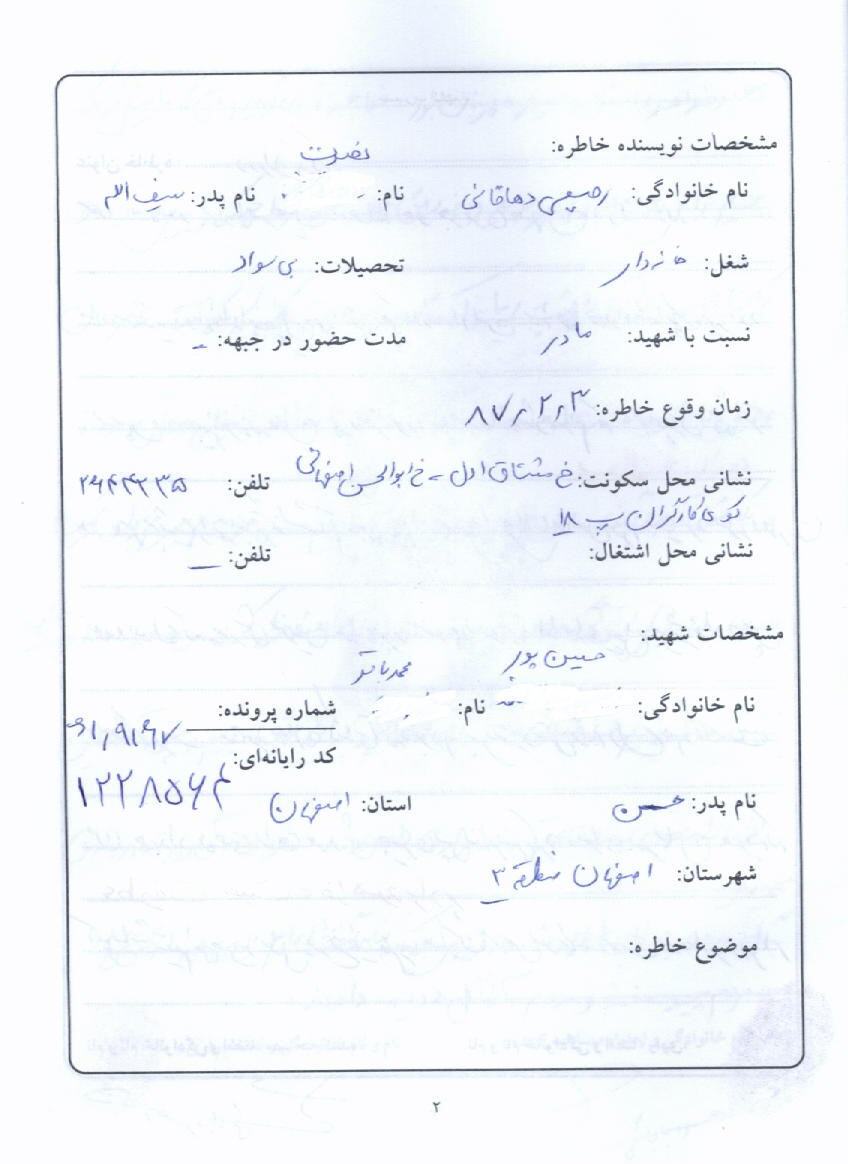 مشخصات نویسنده خاطره:
نام خانوادگی: رحیمی دهاقانی نام: نصرت نام پدر: سیف الله
شغل: خانه دار تحصیلات: بی سواد
نسبت با شهید: مادر مدت حضور در جبهه: –
زمان وقوع خاطره: ۸۷٫۲٫۳
نشانی محل سکونت: خ مشتاق اول – خ ابوالحسن اصفهانی تلفن: ۲۶۴۴۲۳۵
کوی کارگران پ ۱۸
نشانی محل اشتغال: تلفن: –
مشخصات شهید:
نام خانوادگی: حسین پور نام: محمدباقر شماره پرونده:
کد رایانه‌ای: ۱۲۲۸۵۶۴
نام پدر: حسن استان: اصفهان
شهرستان: اصفهان منطقه ۳
موضوع خاطره:
۲